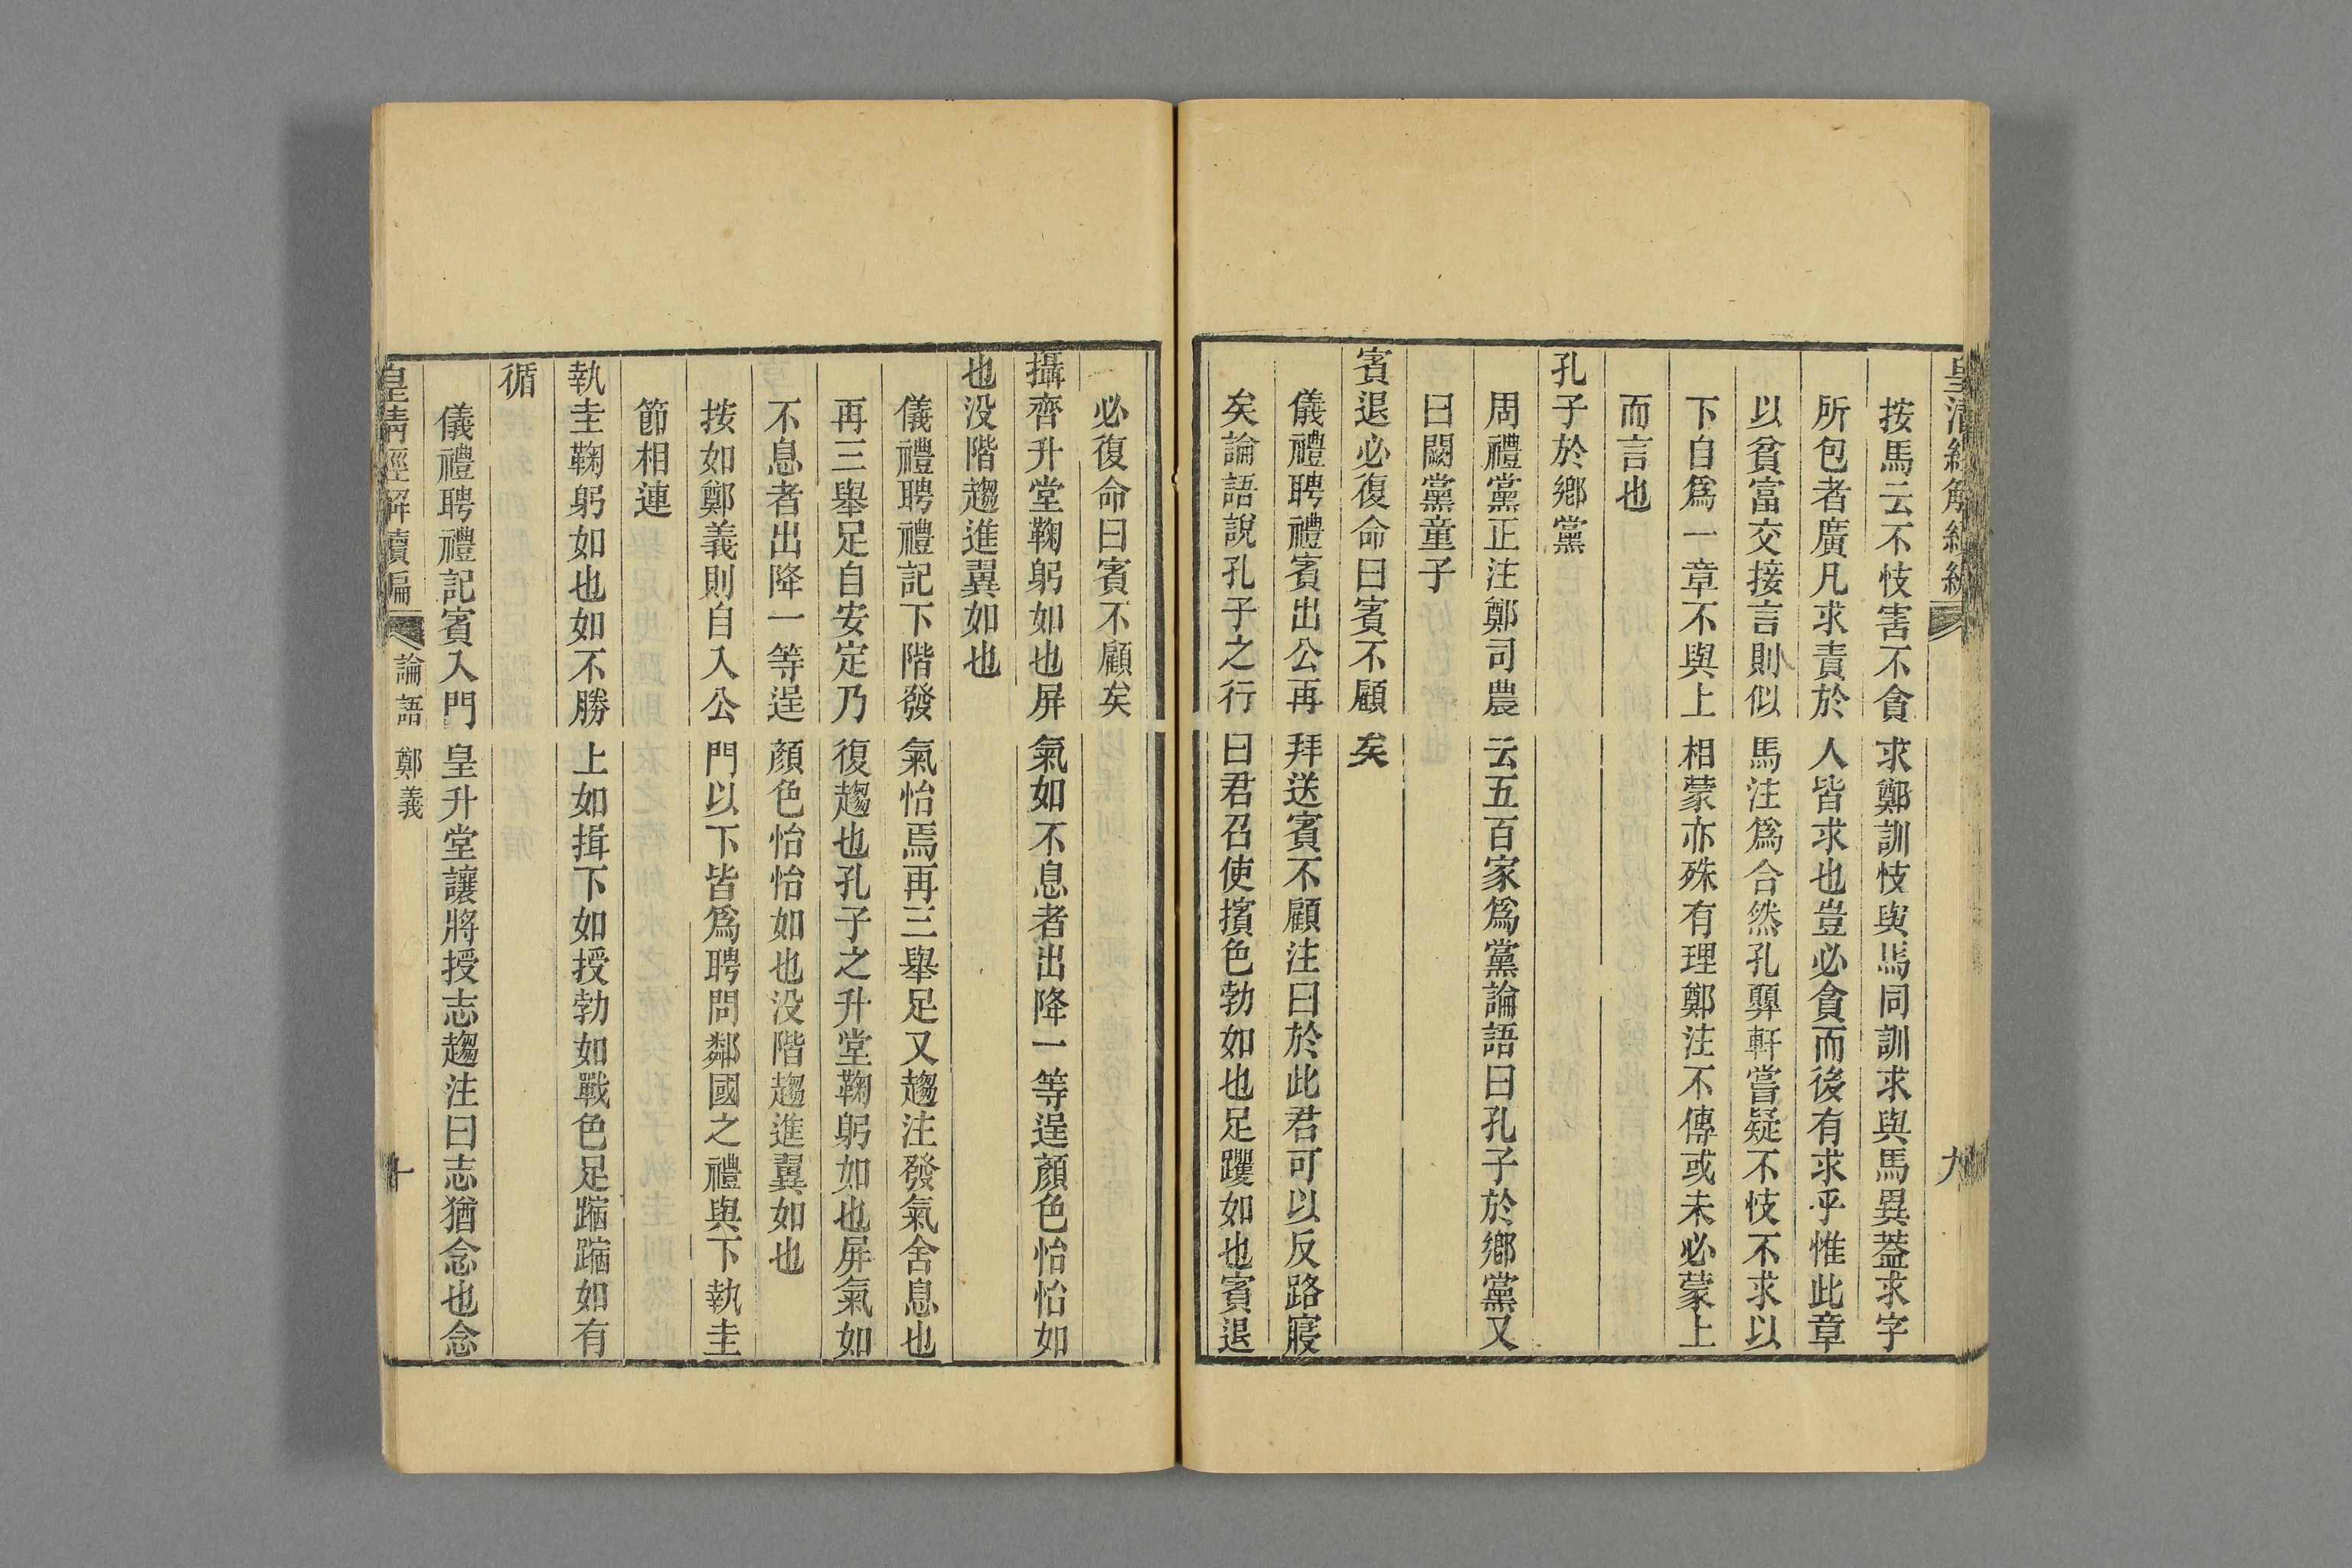 皇清經解續編
九
按馬云不忮害不貪求鄭訓忮與馬同訓求與馬異葢求字
所包者廣凡求責於人皆求也豈必貪而後有求乎惟此章
以貧富交接言則似馬注爲合然孔顨軒嘗疑不忮不求以
下自爲一章不與上相蒙亦殊有理鄭注不傳或未必蒙上
而言也
孔子於鄉黨
周禮黨正注鄭司農云五百家爲黨論語曰孔子於鄉黨又
曰闕黨童子
賓退必復命曰賓不顧矣
儀禮聘禮賓出公再拜送賓不顧注曰於此君可以反路寢
矣論語說孔子之行曰君召使擯色勃如也足躩如也賓退
必復命曰賓不顧矣
攝齊升堂鞠躬如也屏氣如不息者出降一等逞顏色怡怡如
也没階趨進翼如也
儀禮聘禮記下階發氣怡焉再三舉足又趨注發氣舍息也
再三舉足自安定乃復趨也孔子之升堂鞠躬如也屏氣如
不息者出降一等逞顏色怡怡如也没階趨進翼如也
按如鄭義則自入公門以下皆爲聘問鄰國之禮與下執圭
節相連
執圭鞠躬如也如不勝上如揖下如授勃如戰色足蹜蹜如有
循
儀禮聘禮記賓入門皇升堂讓將授志趨注曰志猶念也念
皇清經解續編
論語鄭義
十